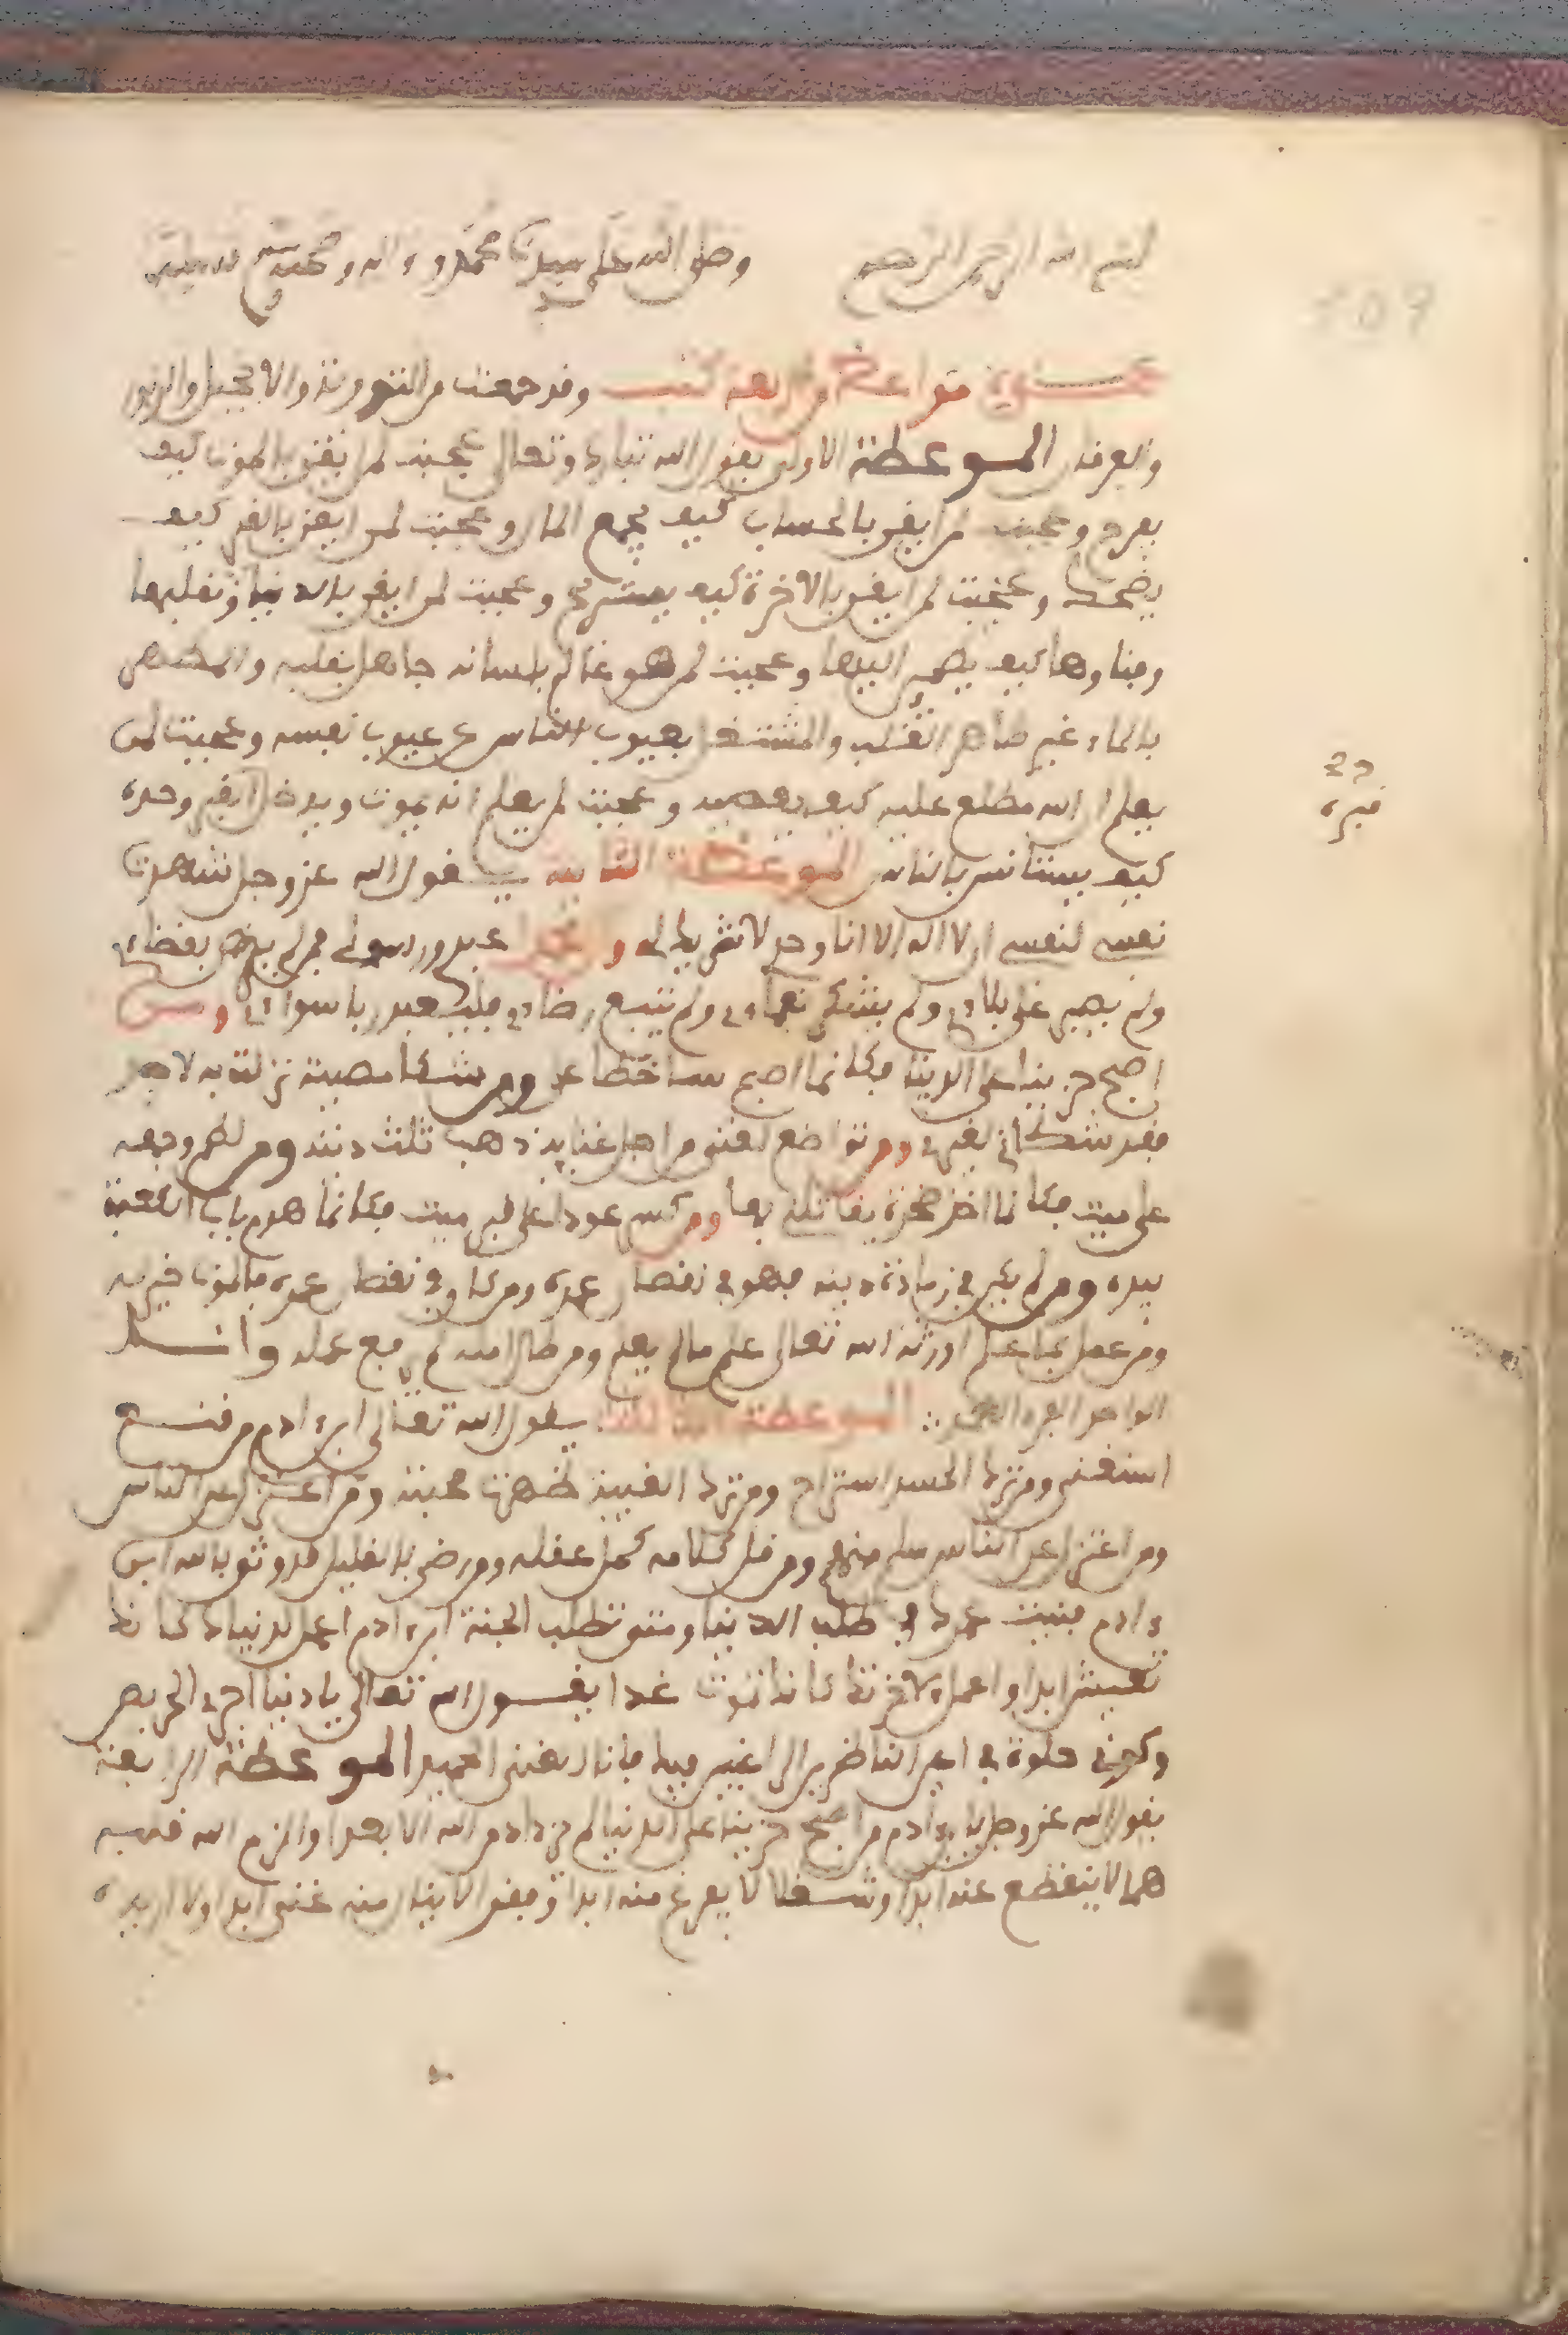 بسم الله الرحمن الرحيم وصلى الله على سيدنا محمد و اله وصحبه وسلم
109
مواعظ من اربعة كتب وقد جمعت من التورية والانجيل والزبور
والفرقان الموعظة الاولى يقول الله تبارك وتعالى عجبت لمن ايقن بالموت كيف
يفرح وعجبت لمن ايقن بالحساب كيف يجمع المال وعجبت لمن ايقن بالقبر كيف
يضحك وعجبت لمن ايقن بالاخرة كيف يستريح وعجبت لمن ايقن بالدنيا وتقلبها
وفناءها كيف يطمئن اليها وعجبت لمن هو عالم بلسانه جاهل بقلبه والمتطهر
بالماء غير طاهر القلب والمشتغل بعيوب الناس عن عيوب نفسه وعجبت لمن
يعلم ان الله مطلع عليه كيف يعصيه وعجبت لمن يعلم انه يموت ويدخل القبر وحده
قبره
كيف يستأنس بالناس الموعظة الثانية يقول الله عز وجل شهدت
نفسي لنفسي ان لا اله الا انا وحدي لا شريك لي ومحمد عبدي ورسولي فمن لم يرض بقضاءي
ولم يصبر على بلاءي ولم يشكر نعماءي ولم يتبع رضاءي فليعبد ربا سواءي ومن
اصبح حزينا على الدنيا فكانما اصبح ساخطا علي ومن شكا مصيبة نزلت به لاحد
فقد شكاني لغيري ومن تواضع لغني من اجل غنايه ذهب ثلث دينه ومن لطم وجهه
على ميت فكانما اخذ صخرة يقاتلني بها ومن كسر عودا على قبر ميت فكانما هدم باب الكعبة
بيده ومن لم يكن في زيادة دينه فهو في نقصان عمره ومن كان في نقصان عمره فالموت خير له
ومن عمل بما علم اورثه الله تعالى علم ما لم يعلم ومن طال امله لم ينفع عمله وانا
الواحد الفرد الموعظة الثالثة يقول الله تعالى ابن ادم من قنع
استغنى ومن ترك الحسد استراح ومن ترك الغيبة ظهرت محبته ومن اعتزل عن الناس
ومن اعتزل عن الناس سلم منهم ومن قل كلامه كمل عقله ومن رضي بالقليل فقد وثق بالله ابن
ءادم فنيت عمرك في طلب الدنيا ومتى تطلب الجنة ابن ءادم اعمل لدنياك كانك
تعيش ابدا واعمل لاخرتك كانك تموت غدا يقول الله تعالى يا دنيا احرمي الحريص
وكوني حلوة في اعين الناظرين الراغبين فيك فانا الغني الحميد الموعظة الرابعة
يقول الله عز وجل يا ابن ءادم من اصبح حزينا على الدنيا لم يزداد من الله الا بعدا والزم الله قلبه
هما لا ينقطع عنه ابدا وشغلا لا يفرغ منه ابدا وفقرا لا ينال منه غنى ابدا